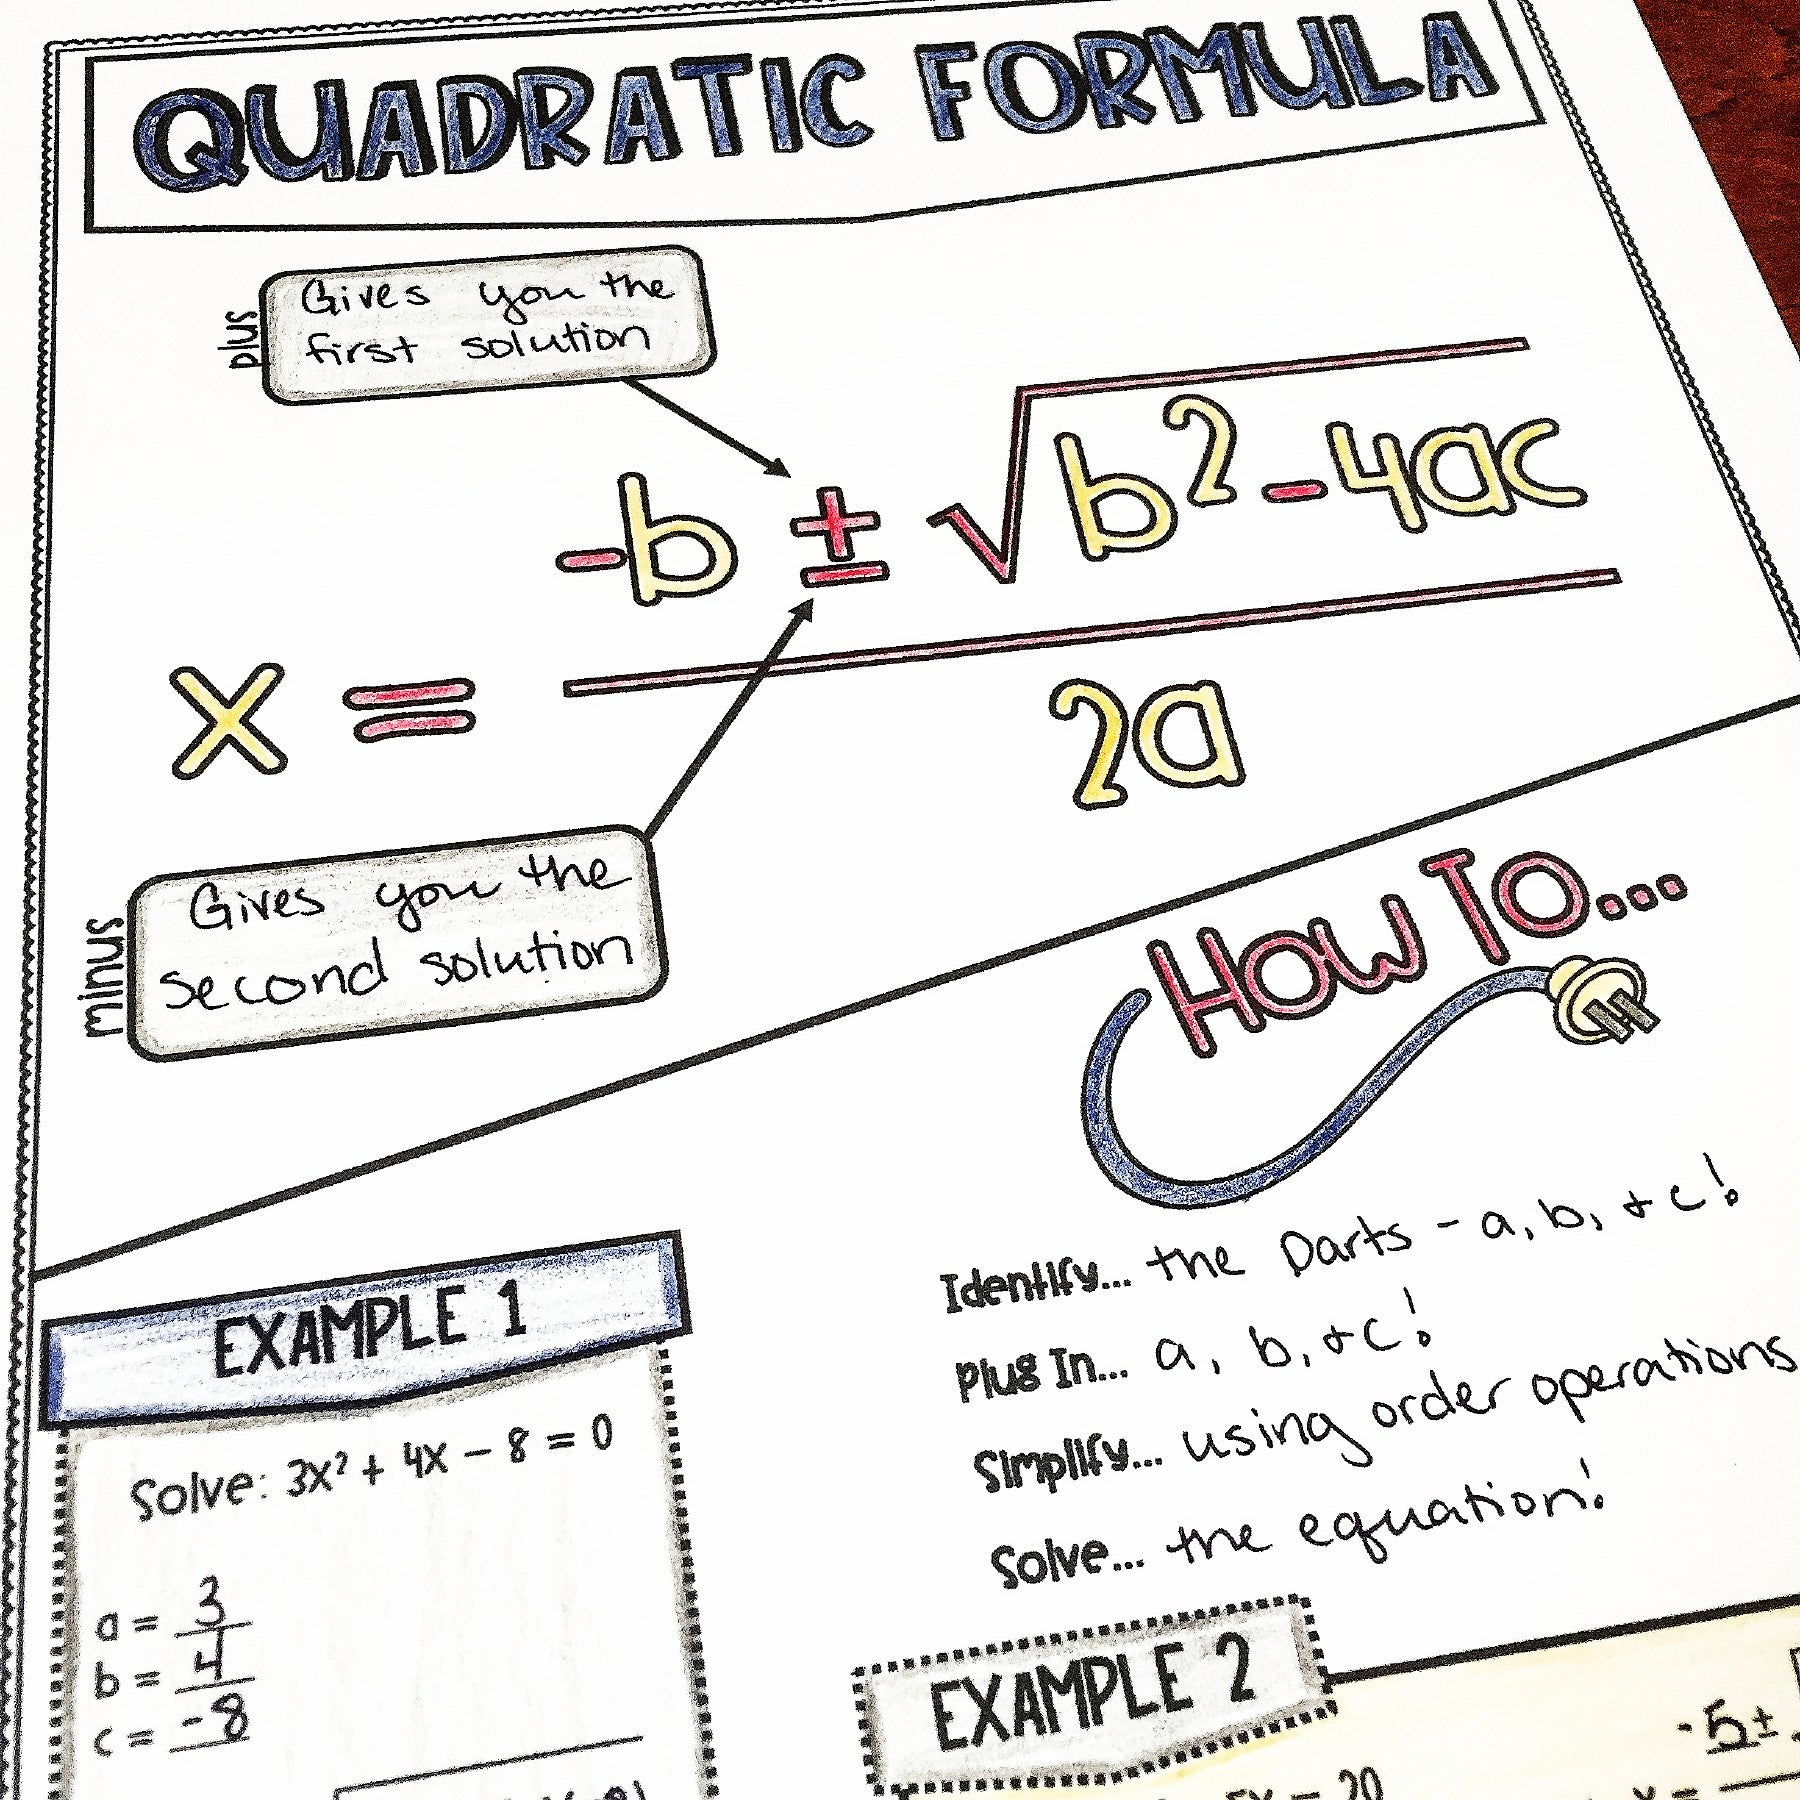 QUADRATIC FORMULA
plus
Gives you the
first solution
x = -b ± √b²-4ac
2a
minus
Gives you the
second solution
HOW TO...
Identify... the Darts - a, b, + c!
Plug In... a, b, + c!
Simplify... using order operations
Solve... the equation!
EXAMPLE 1
Solve: 3x² + 4x – 8 = 0
a = 3
b = 4
c = -8
EXAMPLE 2
-5±
5x – 20
x =